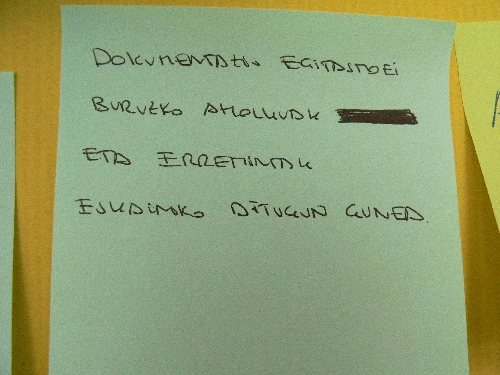 DOKUMENTAZIO EGITASMOEI
BURUZKO AHOLKUAK
ETA ERREMINTAK
ESKAINIKO DITUGUN GUNEA.